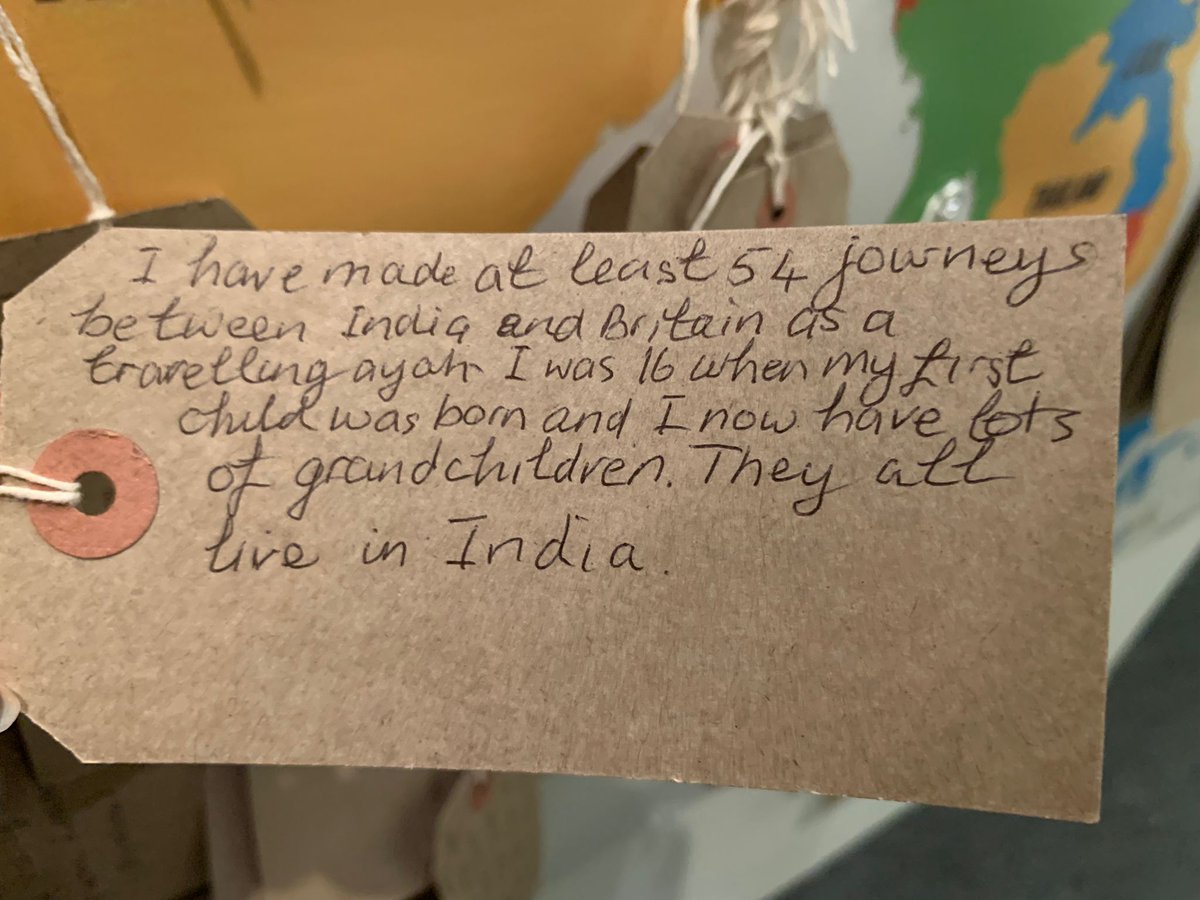 I have made at least 54 journeys
between India and Britain as a
travelling ayah I was 16 when my first
child was born and I now have lots
of grandchildren. They all
live in India.